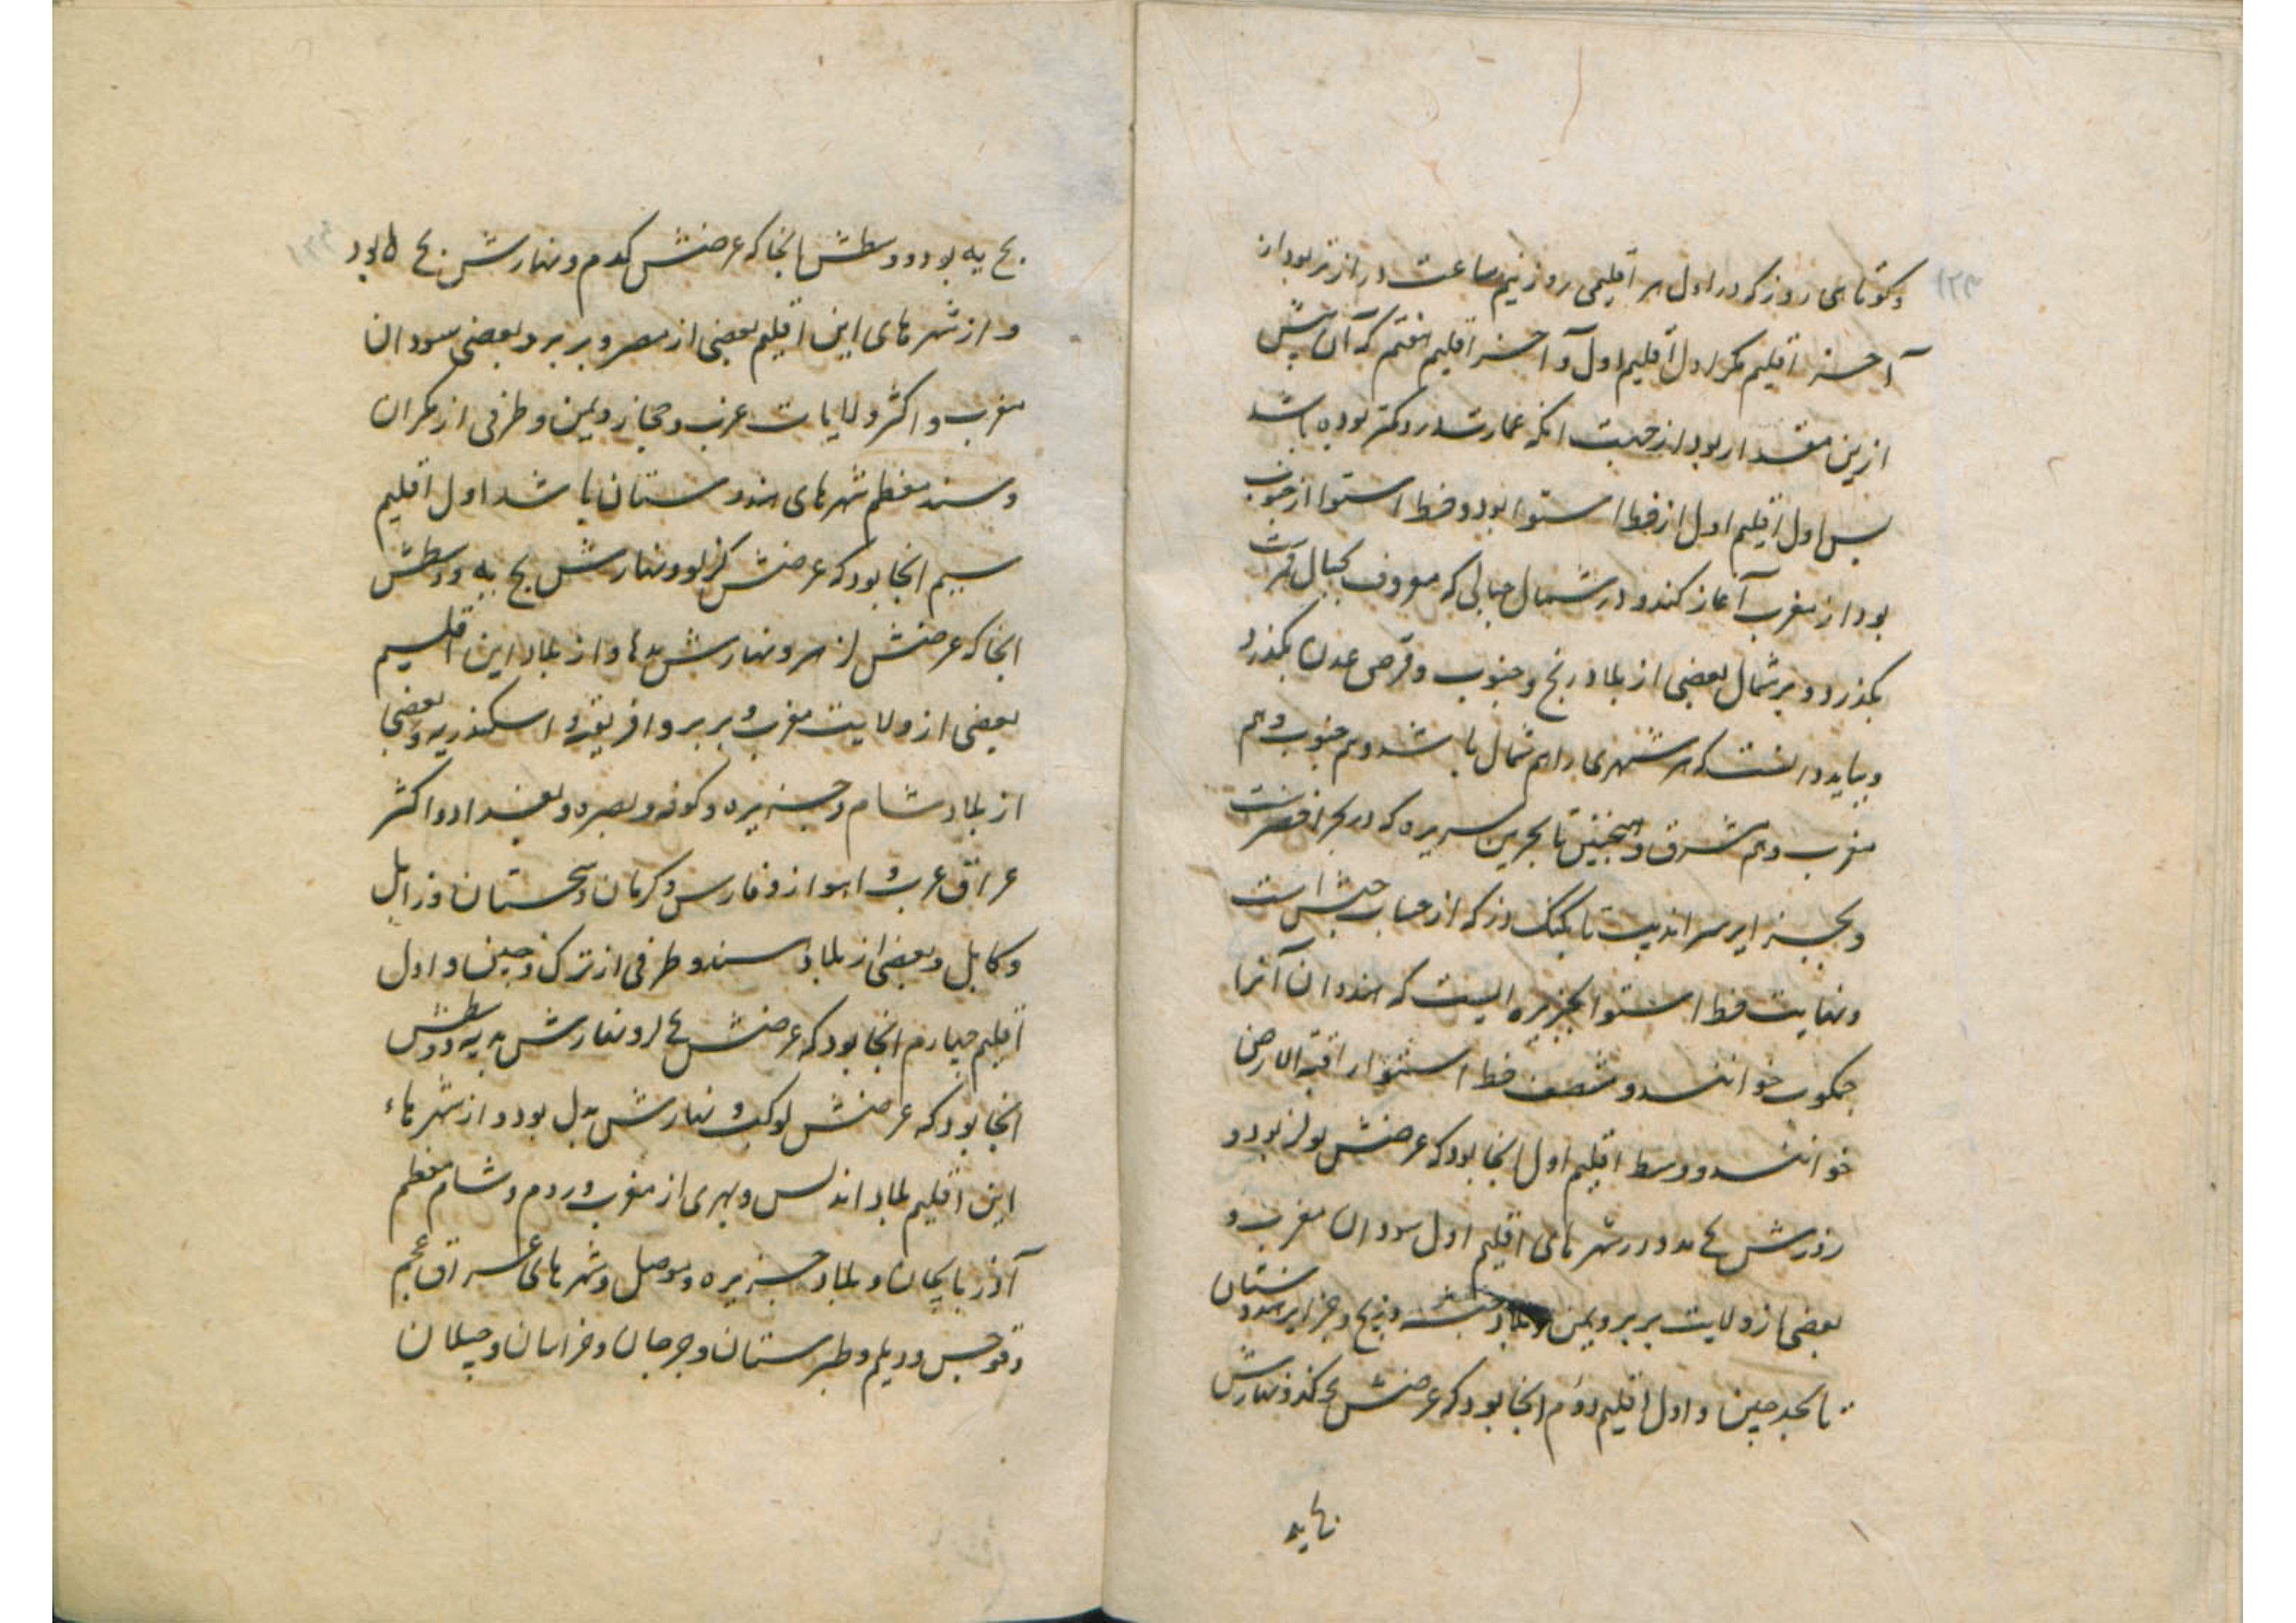 وکوتاهی روز که در اول هر اقلیمی روز نیم ساعت درازتر بود از
آخر اقلیم مکر اول اقلیم اول و آخر اقلیم هفتم که آن بیش
ازین مقدار بود از جهت انکه عمارت درو کمتر بوده باشد
پس اول اقلیم اول از خط استوا بود و خط استوا از جنوب
بود از مغرب آغاز کند و در شمال جبالی که معروف بجبال قمرست
بکذرد و بر شمال بعضی از بلاد زنج و جنوب و قرصی عدن بکذرد
و بباید دانست که هر شهری را هم شمال باشد و هم جنوب و هم
مغرب و هم مشرق و همچنین تا بحرین سریره که در بحر اخضرست
و بجزایر سراندیب تا بکنک دز که از حساب حبش است
و نهایت خط استوا بجزیره ایست که هندوان آنرا
جمکوب خوانند و منصف خط استوا را قبة الارض
خوانند و وسط اقلیم اول انجا بود که عرضش یو لز بود و
روزش یح مد و در شهرهای اقلیم اول سودان مغرب و
بعضی از ولایت بربر و یمن و بلاد حبشه و زنج و جزایر هندوستان
تا بحد چین و اول اقلیم دوم انجا بود که عرضش کد و نهارش
یح یه
یح یه بود و وسطش انجا که عرضش کدم و نهارش یح ل بود
و از شهرهای این اقلیم بعضی از مصر و بربر و بعضی سودان
مغرب و اکثر ولایات عرب و حجاز و یمن و طرفی از مکران
و سند معظم شهرهای هندوستان باشد اول اقلیم
سیم انجا بود که عرضش کز لو و نهارش یح یه و وسطش
انجا که عرضش لز و نهارش ید ها و از بلاد این اقلیم
بعضی از ولایت مغرب و بربر و افریقه و اسکندریه و بعضی
از بلاد شام و جزیره و کوفه و بصره و بغداد و اکثر
عراق عرب و اهواز و فارس و کرمان و سجستان و زابل
و کابل و بعضی از بلاد سند و طرفی از ترک و چین و اول
اقلیم چهارم انجا بود که عرضش لح و نهارش ید یه و وسطش
انجا بود که عرضش لو کب و نهارش ید ل بود و از شهرهاء
این اقلیم بلاد اندلس و بهری از مغرب و روم و شام معظم
آذربایجان و بلاد جزیره و موصل و شهرهای عراق عجم
و قومس و دیلم و طبرستان و جرجان و خراسان و جیلان